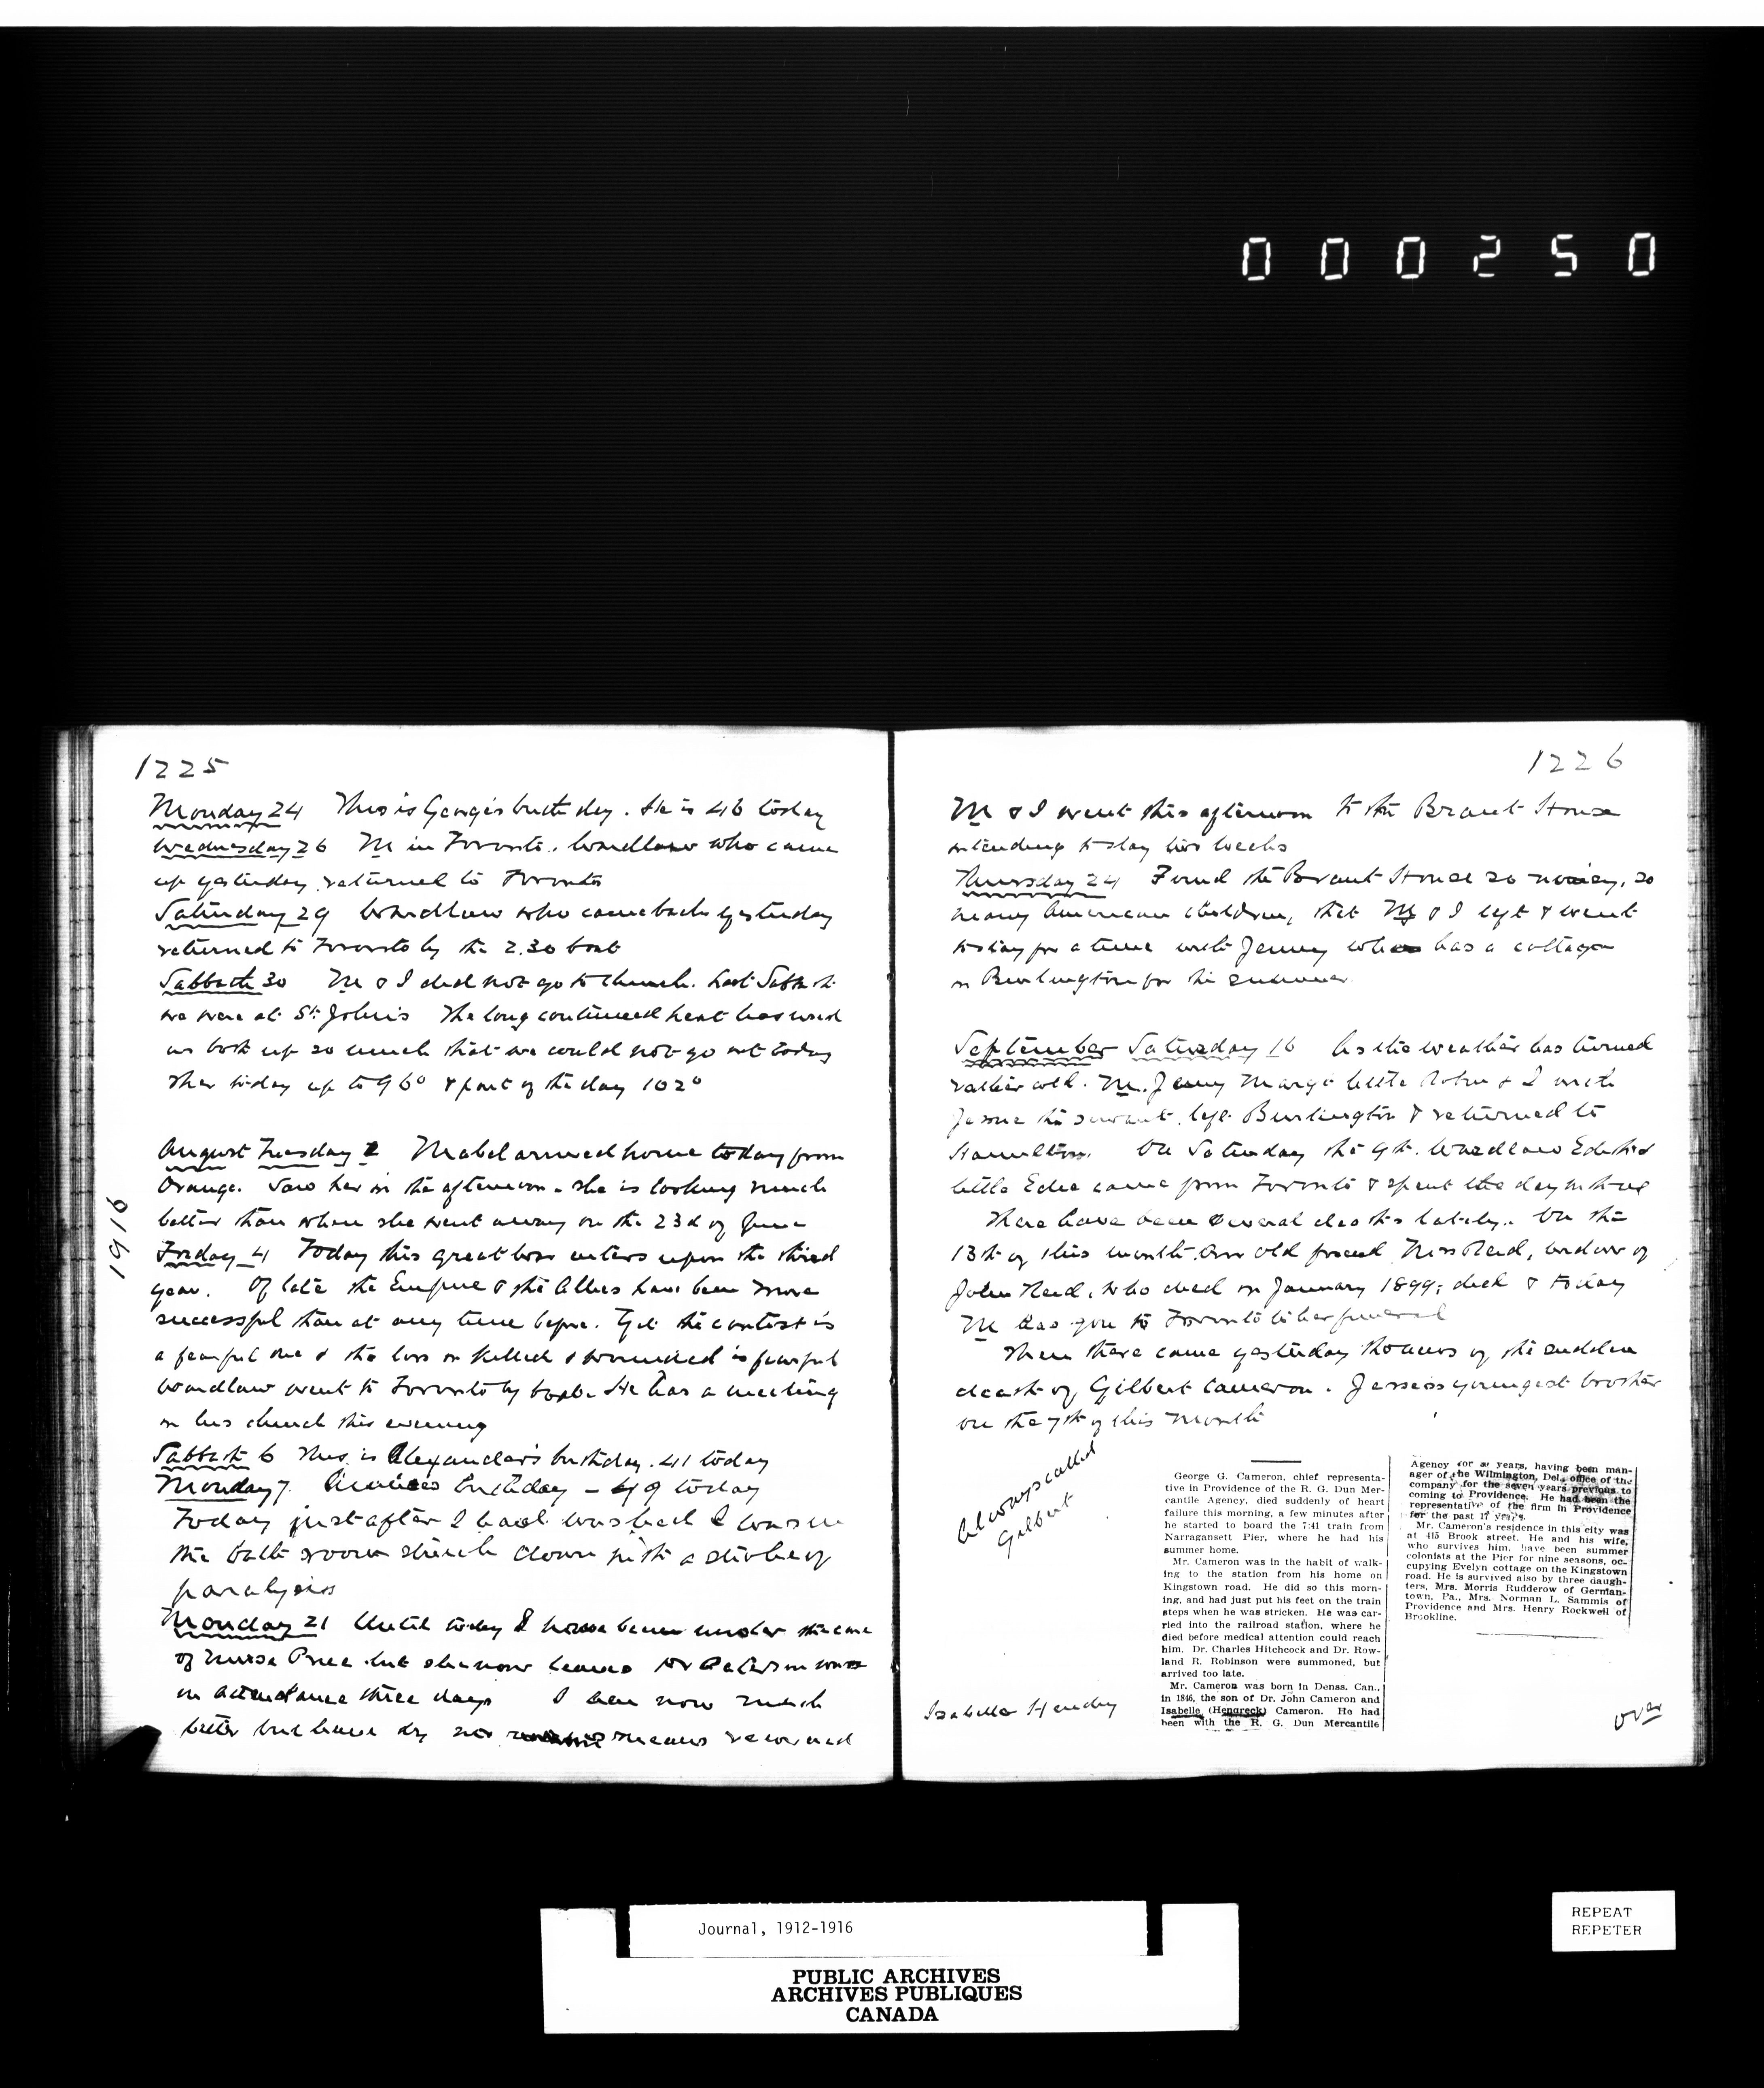 000250
1225
Monday 24 This is George's birth day. He is 46 today
Wednesday 26 M in Toronto. Wardlaw who came
up yesterday returned to Toronto
Saturday 29 Wardlaw who came back yesterday
returned to Toronto by the 2.30 boat
Sabbath 30 M & I did not go to church. Last Sabbath
we were at St John's The long continued heat has used
us both up so much that we could not go out today
Ther today up to 96° & part of the day 102°
August Tuesday 1 Mabel arrived home today from
Orange. Saw her in the afternoon - she is looking much
better than when she went away on the 23d of June
1916
Friday 4 Today this great war enters upon the third
year. Of late the Empire & the Allies have been more
successful than at any time before. Yet the contest is
a fearful one & the loss in killed & wounded is fearful
Wardlaw went to Toronto by boat. He has a meeting
in his church this evening
Sabbath 6 This is Alexander's birthday. 41 today
Monday 7 birthday - 49 today
Today just after I had I was in
the bath room struck down with a stroke of
paralysis
Monday 21 Until today I have been under the care
of Nurse Price but she now leaves Dr was
in attendance three days I am now much
better but have by no means recovered
1226
M & I went this afternoon to the Brant House
intending to stay two weeks
Thursday 24 Found the Brant House so noisy, so
many American children, that M & I left & went
to stay for a time with Jenny who has a cottage
in Burlington for the summer
September Saturday 16 As the weather has turned
rather cold. M. Jenny Margt little John & I with
Jessie the servant left Burlington & returned to
Hamilton. On Saturday the 9th. Wardlaw Edith &
little Edie came from Toronto & spent the day with us
There have been several deaths lately. On the
13th of this month our old friend Mrs Reid, widow of
John Reid, who died in January 1899, died & today
M has gone to Toronto to her funeral
Then there came yesterday the news of the sudden
death of Gilbert Cameron. Jessie's youngest brother
on the 7th of this month
Always called
Gilbert
George G. Cameron, chief representa-
tive in Providence of the R. G. Dun Mer-
cantile Agency, died suddenly of heart
failure this morning, a few minutes after
he started to board the 7:41 train from
Narragansett Pier, where he had his
summer home.
Mr. Cameron was in the habit of walk-
ing to the station from his home on
Kingstown road. He did so this morn-
ing, and had just put his feet on the train
steps when he was stricken. He was car-
ried into the railroad station, where he
died before medical attention could reach
him. Dr. Charles Hitchcock and Dr. Row-
land R. Robinson were summoned, but
arrived too late.
Mr. Cameron was born in Denss. Can.,
in 1846, the son of Dr. John Cameron and
Isabelle (Hengreck) Cameron. He had
been with the R. G. Dun Mercantile
Isabella Hendry
Agency for years, having been man-
ager of the Wilmington, Del., office of the
company for the seven years previous to
coming to Providence. He had been the
representative of the firm in Providence
for the past 17 years.
Mr. Cameron's residence in this city was
at 415 Brook street. He and his wife,
who survives him, have been summer
colonists at the Pier for nine seasons, oc-
cupying Evelyn cottage on the Kingstown
road. He is survived also by three daugh-
ters, Mrs. Morris Rudderow of German-
town, Pa., Mrs. Norman L. Sammis of
Providence and Mrs. Henry Rockwell of
Brookline.
over
Journal, 1912-1916
PUBLIC ARCHIVES
ARCHIVES PUBLIQUES
CANADA
REPEAT
REPETER